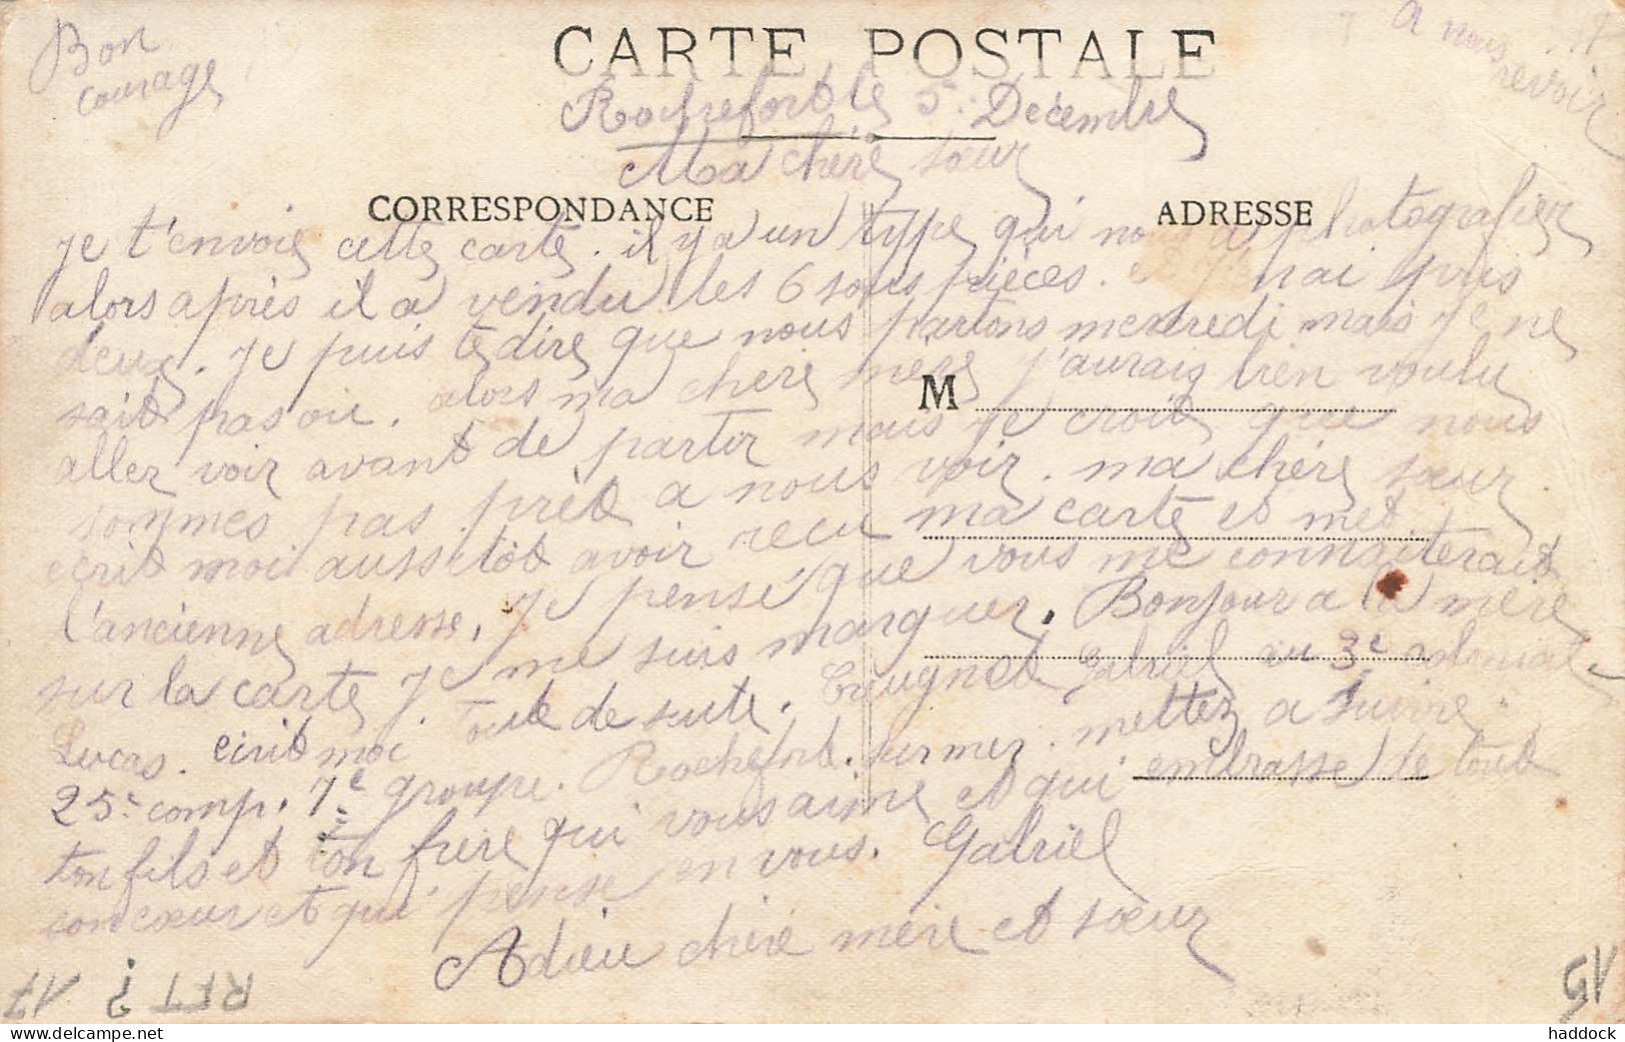 Bon
courage
A nous
revoir
CARTE POSTALE
Rochefort le 5 Décembre
Ma chère sœur
CORRESPONDANCE
ADRESSE
je t'envoie cette carte. il y a un type qui nous a photografier
alors après il a vendu les 6 sous pièces. j'en ai pris
deux. Je puis te dire que nous partons mercredi mais je ne
sait pas ou. alors ma chère mère j'aurais bien voulu
M
aller voir avant de partir mais je croit que nous
sommes pas prêt a nous voir. ma chère sœur
écrit moi aussitôt avoir recu ma carte et met
l'ancienne adresse. Je pensé que vous me connaiterait
sur la carte je me suis marquer. Bonjour a la mère
Lucas. ecrit moi toute de suite. Gabriel au 3e colonial
25e comp. 7e groupe. Rochefort. sur mer. mettez a suivre
ton fils et ton frere qui vous aime et qui embrasse de tout
son cœur et qui pense en vous. Gabriel
Adieu chère mère et sœur
RFT ? 17
GV
haddock